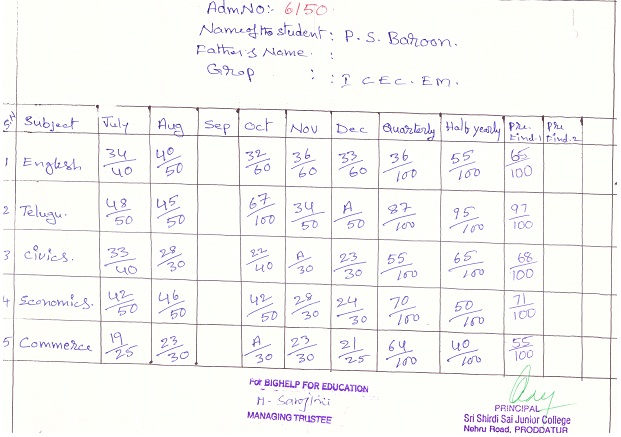 Adm.No:- 6150.
Name of the student : P. S. Baroon.
Father's Name. :
Grop : : I C E C. E M.
Sn Subject July Aug Sep Oct Nov Dec Quarterly Half yearly Pre. Find.1 Pre Find.2
1 English 34/40 40/50 32/60 36/60 33/60 36/100 55/100 65/100
2 Telugu. 48/50 45/50 67/100 34/50 A/50 87/100 95/100 97/100
3 Civics. 33/40 28/30 22/40 A/30 23/30 55/100 65/100 68/100
4 Economics. 42/50 46/50 42/50 28/30 24/30 70/100 50/100 71/100
5 Commerce 19/25 23/30 A/30 23/30 21/25 64/100 40/100 55/100
For BIGHELP FOR EDUCATION
M. Sarojini
MANAGING TRUSTEE
PRINCIPAL
Sri Shirdi Sai Junior College
Nehru Road, PRODDATUR